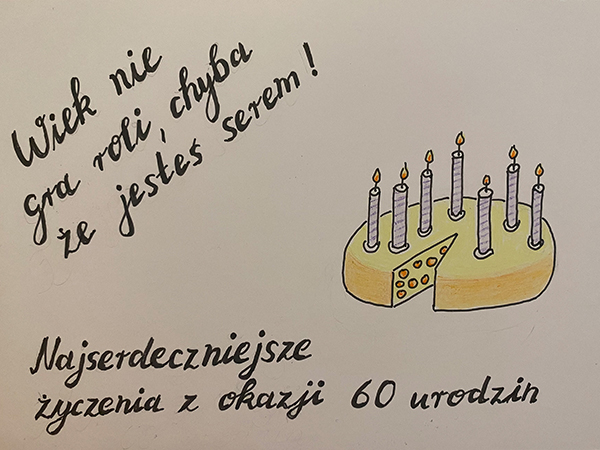 Wiek nie
gra roli, chyba
że jesteś serem!
Najserdeczniejsze
życzenia z okazji 60 urodzin